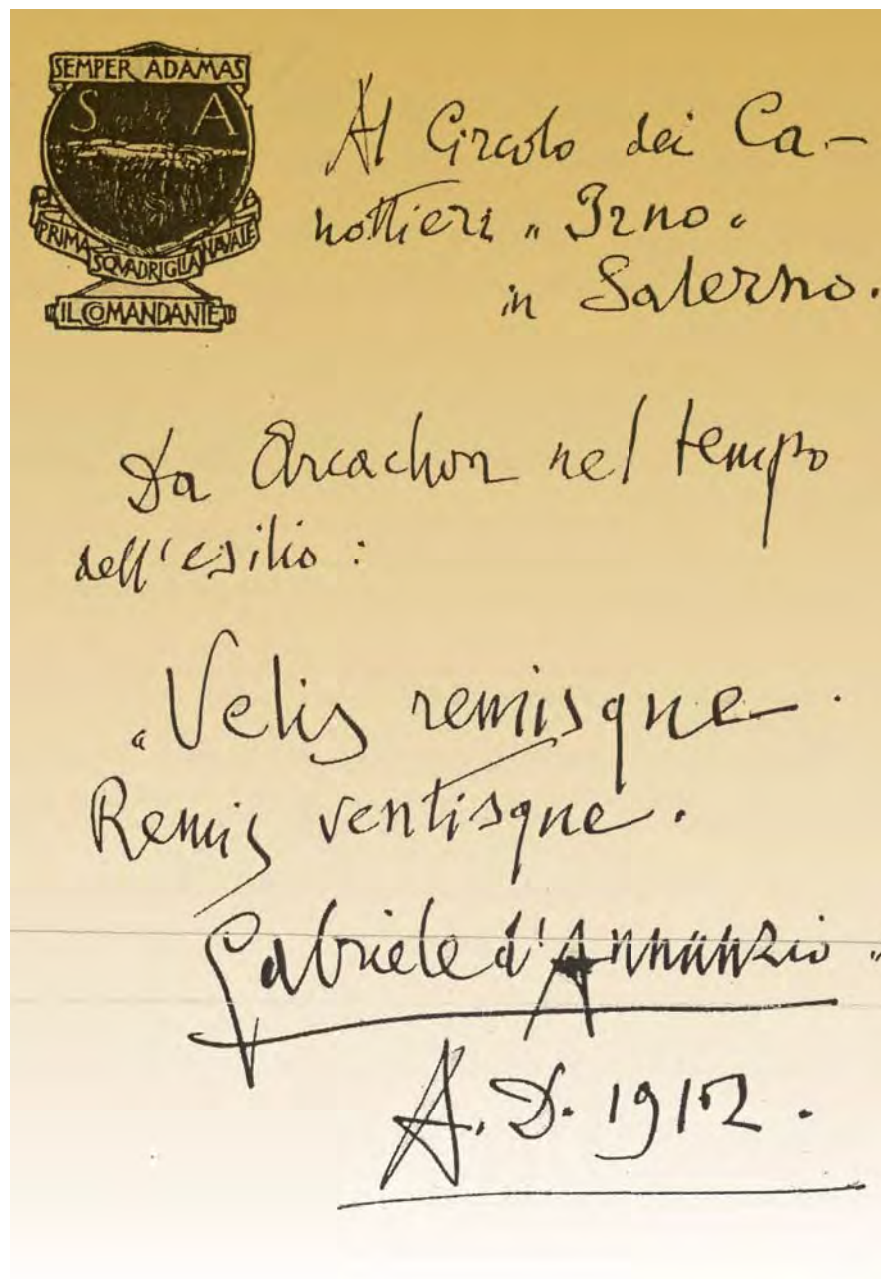 SEMPER ADAMAS
S A
PRIMA SQVADRIGLIA NAVALE
IL COMANDANTE
Al Circolo dei Ca-
nottieri "Irno"
in Salerno.
Da Arcachon nel tempo
dell'esilio:
"Velis remisque.
Remis ventisque.
Gabriele d'Annunzio"
A.D. 1912.